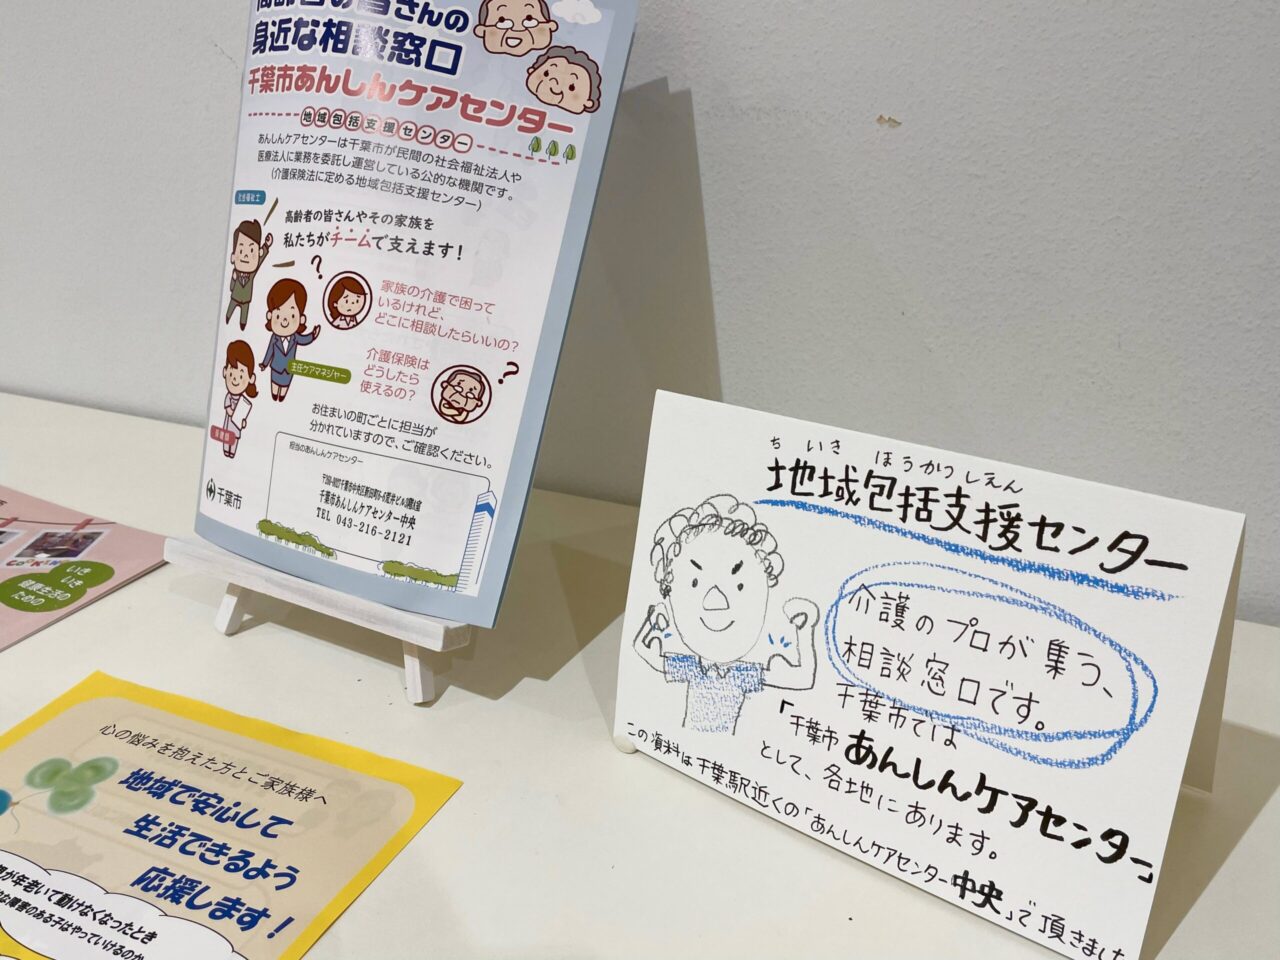 高齢者の皆さんの
身近な相談窓口
千葉市あんしんケアセンター
地域包括支援センター
あんしんケアセンターは千葉市が民間の社会福祉法人や
医療法人に業務を委託し運営している公的な機関です。
(介護保険法に定める地域包括支援センター)
社会福祉士
高齢者の皆さんやその家族を
私たちがチームで支えます!
?
家族の介護で困って
いるけれど、
どこに相談したらいいの?
主任ケアマネジャー
介護保険は
どうしたら
使えるの?
?
お住まいの町ごとに担当が
分かれていますので、ご確認ください。
担当のあんしんケアセンター
千葉市あんしんケアセンター中央
TEL 043-216-2121
千葉市
いき
いき
健康生活の
ための
心の悩みを抱えた方とご家族様へ
地域で安心して
生活できるよう
応援します!
が年老いて動けなくなったとき
な障害のある子はやっていけるのか
ちいきほうかつしえん
地域包括支援センター
介護のプロが集う、
相談窓口です。
千葉市では
「千葉市あんしんケアセンター」
として、各地にあります。
この資料は千葉駅近くの「あんしんケアセンター中央」で頂きました